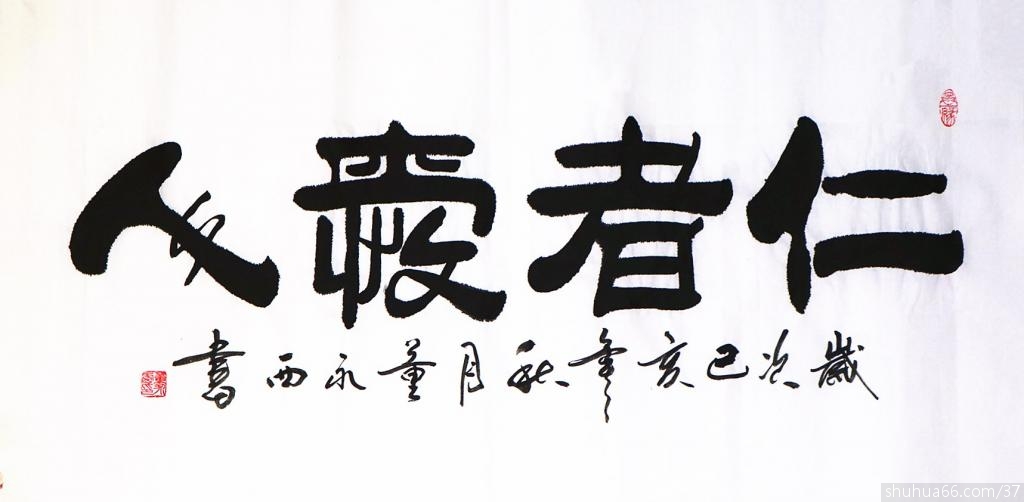 仁者愛人
歲次己亥年秋月董永西書
shuhua66.com/37